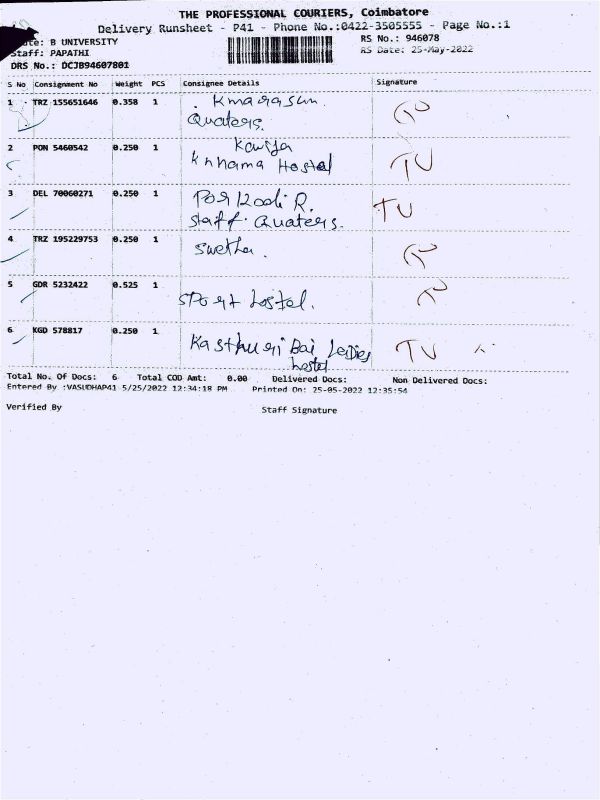 THE PROFESSIONAL COURIERS, Coimbatore
Delivery Runsheet - P41 - Phone No.:0422-3505555 - Page No.:1
B UNIVERSITY
RS No.: 946078
Staff: PAPATHI
RS Date: 25-May-2022
DRS No.: DCJB94607801
S No Consignment No Weight PCS Consignee Details Signature
1 TRZ 155651646 0.358 1
Quaters.
2 PON 5460542 0.250 1
Hostel TU
3 DEL 70060271 0.250 1 Porkodi R. TU
Staff. Quaters.
4 TRZ 195229753 0.250 1 Swetha.
5 GDR 5232422 0.525 1
Sport hostel.
6 KGD 578817 0.250 1 Kasthuri Bai Ledies TU
hostel
Total No. Of Docs: 6 Total COD Amt: 0.00 Delivered Docs: Non Delivered Docs:
Entered By :VASUDHAP41 5/25/2022 12:34:18 PM Printed On: 25-05-2022 12:35:54
Verified By Staff Signature